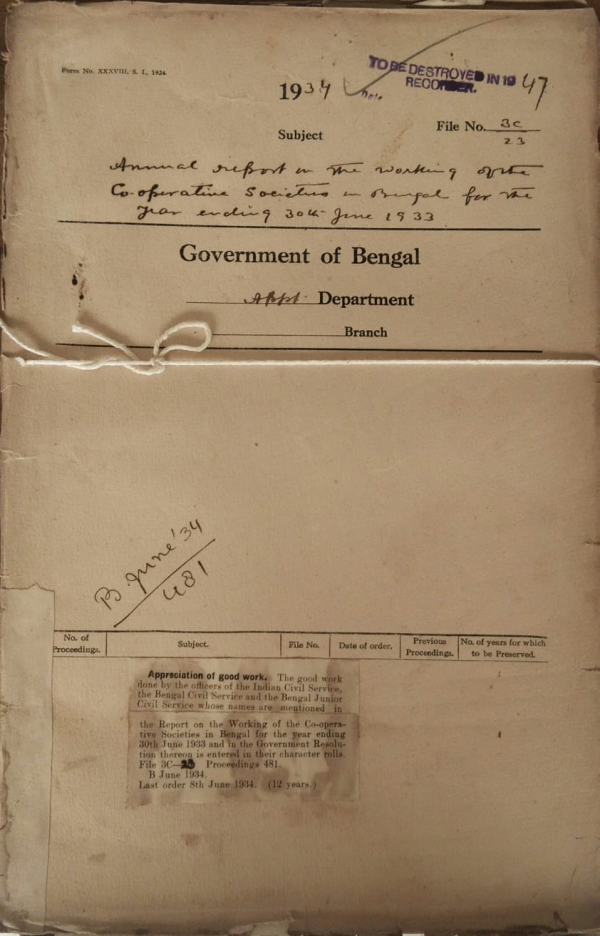 Form No. XXXVIII, S. I., 1924.
TO BE DESTROYED IN 1947
RECORDER.
1934
File No. 3C
23
Subject
Annual report on the working of the
Co-operative Societies in Bengal for the
Year ending 30th June 1933
Government of Bengal
Appt. Department
Branch
B June '34
481
No. of Proceedings. Subject. File No. Date of order. Previous Proceedings. No. of years for which to be Preserved.
Appreciation of good work. The good work
done by the officers of the Indian Civil Service,
the Bengal Civil Service and the Bengal Junior
Civil Service whose names are mentioned in
the Report on the Working of the Co-opera-
tive Societies in Bengal for the year ending
30th June 1933 and in the Government Resolu-
tion thereon is entered in their character rolls.
File 3C—23 Proceedings 481.
B June 1934.
Last order 8th June 1934. (12 years.)